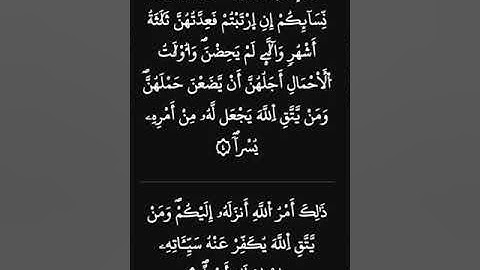 نِّسَآئِكُمْ إِنِ اِ۪رْتَبْتُمْ فَعِدَّتُهُنَّ ثَلَٰثَةُ
أَشْهُرٖ وَٱلَّٰٓـِٔے لَمْ يَحِضْنَۖ وَأُوْلَٰتُ
اُ۬لْأَحْمَالِ أَجَلُهُنَّ أَنْ يَّضَعْنَ حَمْلَهُنَّۖ
وَمَنْ يَّتَّقِ اِ۬للَّهَ يَجْعَل لَّهُۥ مِنْ أَمْرِهِۦ
يُسْراٗۖ ۝٤
ذَٰلِكَ أَمْرُ اُ۬للَّهِ أَنزَلَهُۥ إِلَيْكُمْۖ وَمَنْ
يَّتَّقِ اِ۬للَّهَ يُكَفِّرْ عَنْهُ سَيِّـَٔاتِهِۦ